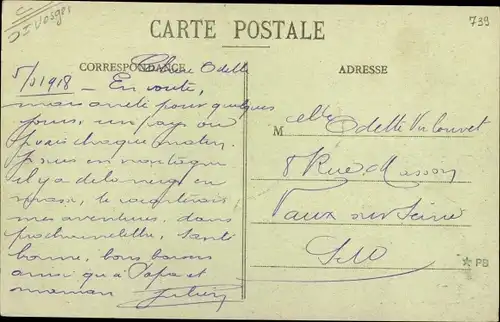 Vosges
739
CARTE POSTALE
CORRESPONDANCE
ADRESSE
Chère Odette
5/1 1918 - En route,
mais arrêté pour quelques
jours, un pays où
chaque matin
Je suis en montagne
il y a de la neige en
masse, te
mes aventures, dans
prochaine lettre, santé
bonne, bons baisers
ainsi qu'à Papa et
maman Julien
M elle Odette
8 Rue Masson
Vaux sur Seine
S et O
PB